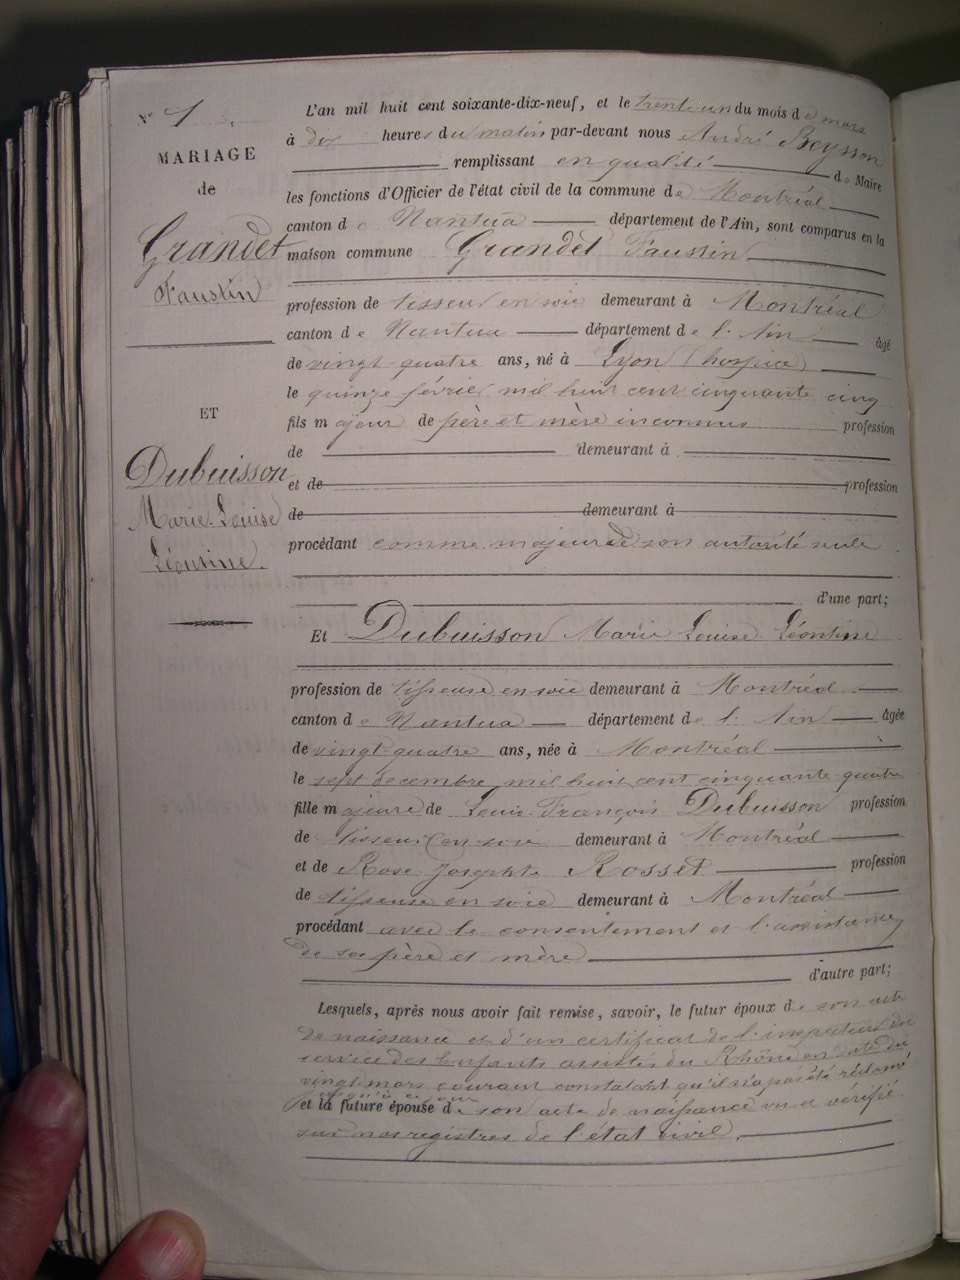 N° 1
MARIAGE
de
Grandet
Faustin
ET
Dubuisson
Marie Louise
Léontine.
L'an mil huit cent soixante-dix-neuf, et le trente un du mois de mars
à dix heures du matin par-devant nous André Beysson
remplissant en qualité de Maire
les fonctions d'Officier de l'état civil de la commune de Montréal
canton de Nantua département de l'Ain, sont comparus en la
maison commune Grandet Faustin
profession de tisseur en soie demeurant à Montréal
canton de Nantua département de l'Ain âgé
de vingt-quatre ans, né à Lyon (hospice)
le quinze février mil huit cent cinquante cinq
fils majeur de père et mère inconnus profession
de demeurant à
et de profession
de demeurant à
procédant comme majeur de son autorité seule
d'une part;
Et Dubuisson Marie Louise Léontine
profession de tisseuse en soie demeurant à Montréal
canton de Nantua département de l'Ain âgée
de vingt-quatre ans, née à Montréal
le sept décembre mil huit cent cinquante quatre
fille majeure de Louis François Dubuisson profession
de tisseur en soie demeurant à Montréal
et de Rose Josephte Rosset profession
de tisseuse en soie demeurant à Montréal
procédant avec le consentement et l'assistance
de ses père et mère
d'autre part;
Lesquels, après nous avoir fait remise, savoir, le futur époux de son acte
de naissance et d'un certificat de l'inspecteur du
service des Enfants assistés du Rhône en date du
vingt mars courant constatant qu'il n'a pas été réclamé
jusqu'à ce jour
et la future épouse de son acte de naissance vu et vérifié
sur nos registres de l'état civil.